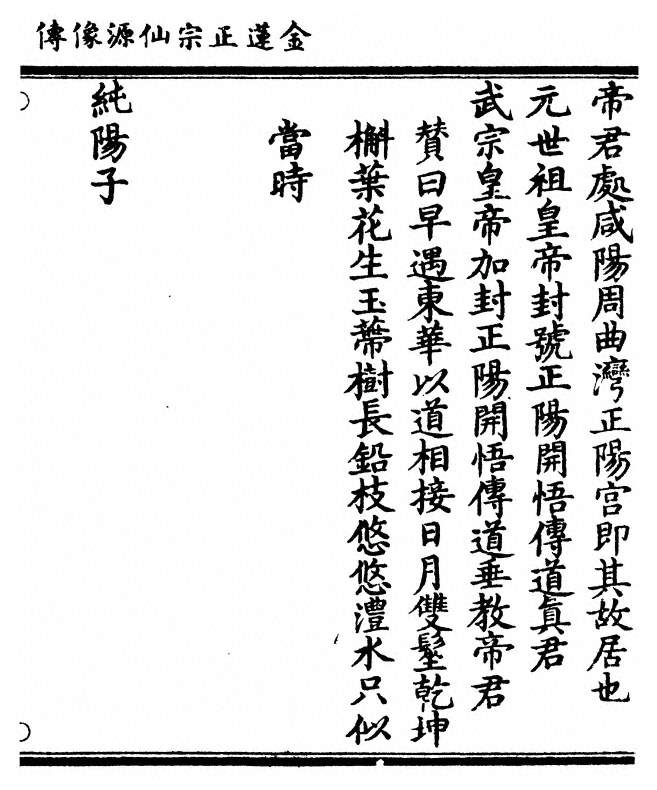 金蓮正宗仙源像傳
帝君處咸陽周曲灣正陽宮即其故居也
元世祖皇帝封號正陽開悟傳道眞君
武宗皇帝加封正陽開悟傳道垂教帝君
贊曰早遇東華以道相接日月雙髽乾坤
槲葉花生玉蔕樹長鉛枝悠悠澧水只似
當時
純陽子